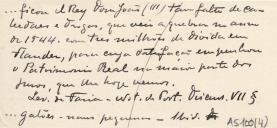 ... ficou el Rey Dom João (III) tam falto de ca-
bedaes e trigos, que veio a quebrar no anno
de 1544. com tres milhões de divida em
Flandes, para cuja satisfação empenhou
o Patrimonio Real na maior parte dos
juros, que ate hoje vemos.
Sev. de Faria - Not. de Port. Discurs. VII §
... galiões - naus pequenas - Ibid.
AS100(4)